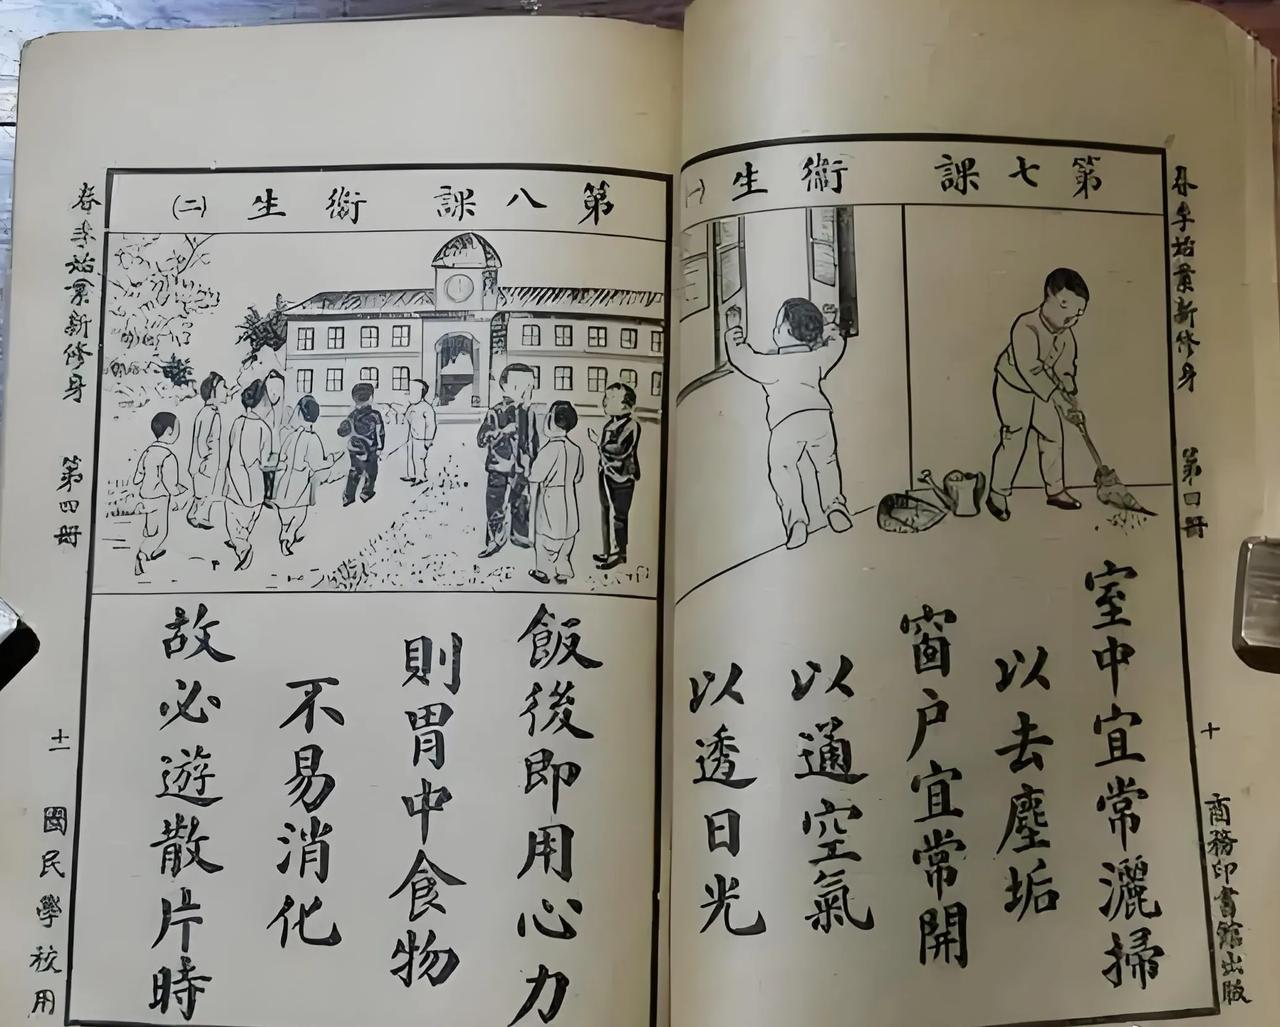 春季始業新修身 第四冊
十
商務印書館出版
第七課 衛生 (一)
室中宜常灑掃
以去塵垢
窗户宜常開
以通空氣
以透日光
第八課 衛生 (二)
飯後即用心力
則胃中食物
不易消化
故必遊散片時
春季始業新修身 第四冊
十一
國民學校用